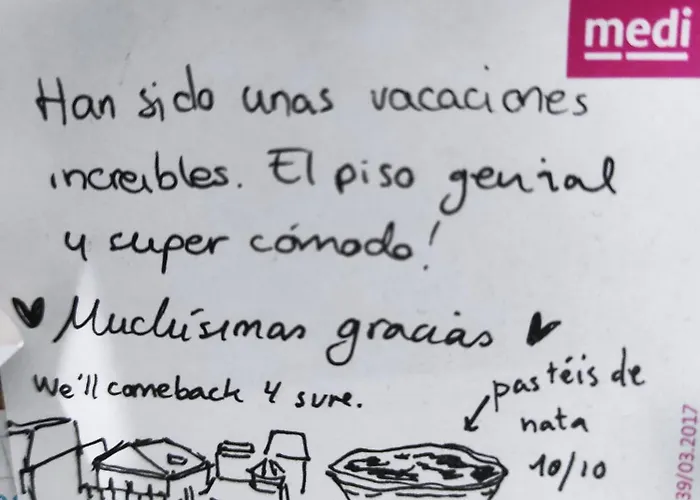 medi
Han sido unas vacaciones
increibles. El piso genial
y super cómodo!
Muchísimas gracias
We'll comeback 4 sure.
pastéis de
nata
10/10
9/03.2017